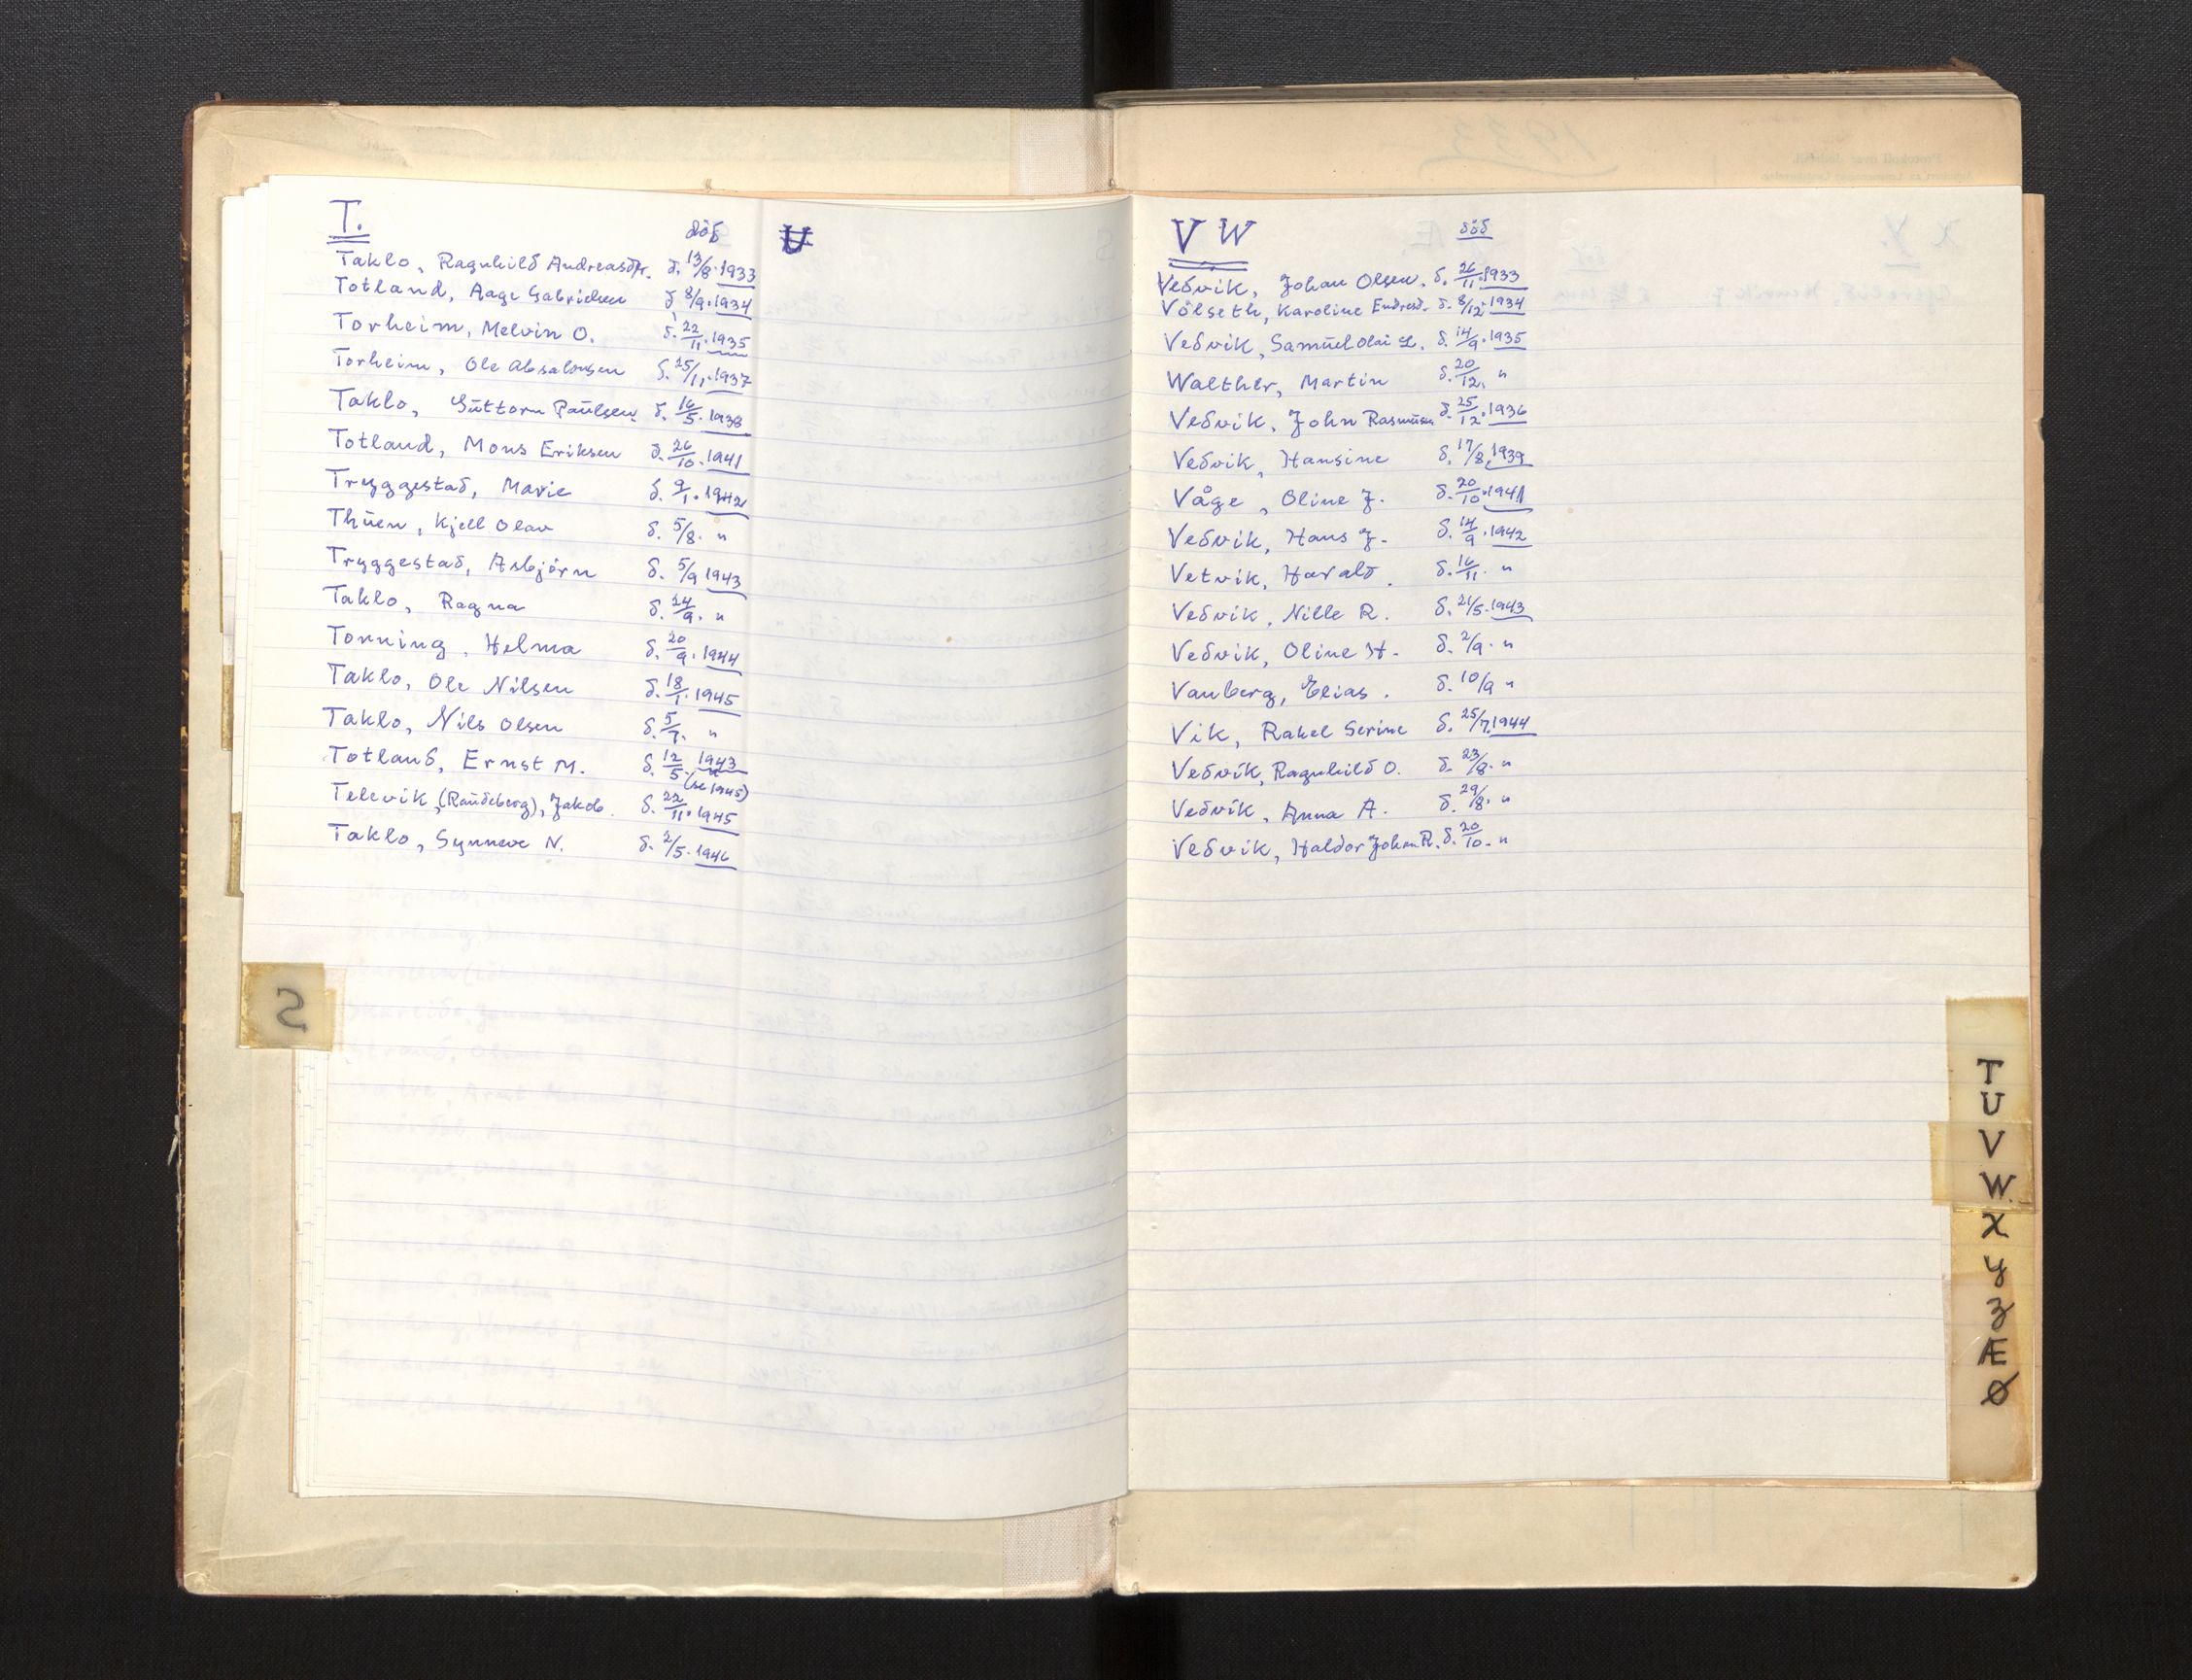 T. död
Taklo, Ragnhild Andreasdtr. d. 13/8. 1933
Totland, Aage Gabrielsen d. 8/9. 1934
Torheim, Melvin O. d. 22/11. 1935
Torheim, Ole Absalonsen d. 25/11. 1937
Taklo, Guttorm Paulsen d. 16/5. 1938
Totland, Mons Eriksen d. 26/10. 1941
Tryggestad, Marie d. 9/1. 1942
Thuen, Kjell Olav d. 5/8. "
Tryggestad, Asbjörn d. 5/9 1943
Taklo, Ragna d. 24/9. "
Tonning, Helma d. 20/9. 1944
Taklo, Ole Nilsen d. 18/1. 1945
Taklo, Nils Olsen d. 5/7. "
Totland, Ernst M. d. 12/5. 1943
(se 1945)
Televik, (Raudeberg), Jakob. d. 22/11. 1945
Taklo, Synneve N. d. 2/5. 1946
U
S
V W död
Vedvik, Johan Olsen. d. 26/11. 1933
Völseth, Karoline Endresd. d. 8/12. 1934
Vedvik, Samuel Olai L. d. 14/9. 1935
Walther, Martin d. 20/12. "
Vedvik, John Rasmusen d. 25/12. 1936
Vedvik, Hansine d. 17/8. 1939
Våge, Oline J. d. 20/10. 1941
Vedvik, Hans J. d. 14/9. 1942
Vetvik, Harald. d. 16/11. "
Vedvik, Nille R. d. 21/5. 1943
Vedvik, Oline H. d. 2/9. "
Vanberg, Elias. d. 10/9 "
Vik, Rakel Serine d. 25/7. 1944
Vedvik, Ragnhild O. d. 23/8. "
Vedvik, Anna A. d. 29/8. "
Vedvik, Haldor Johan R. d. 20/10. "
T
U
V
W.
X
y
z
Æ
Ø